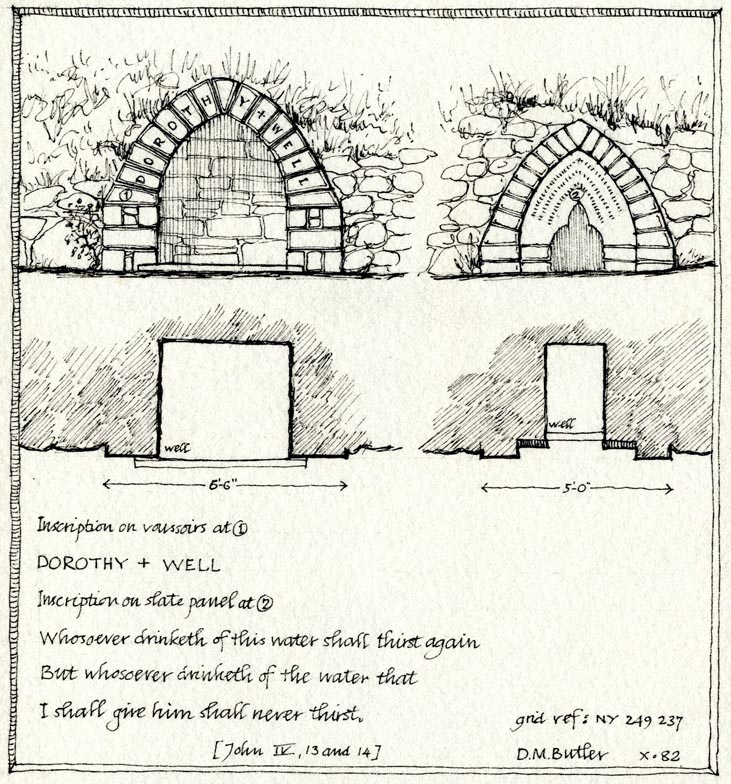 DOROTHY + WELL
①
②
well
well
6'-6"
5'-0"
Inscription on voussoirs at ①
DOROTHY + WELL
Inscription on slate panel at ②
Whosoever drinketh of this water shall thirst again
But whosoever drinketh of the water that
I shall give him shall never thirst.
[John IV, 13 and 14]
grid ref: NY 249 237
D.M.Butler x.82